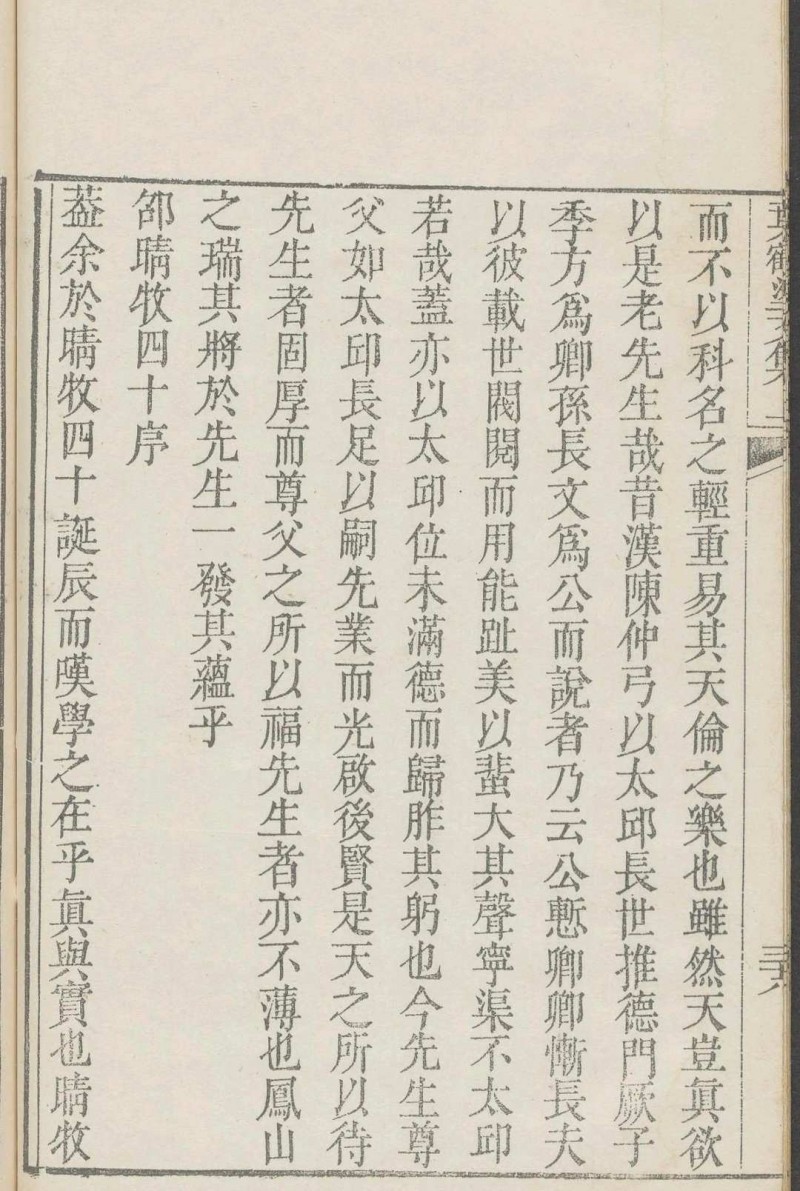 而不以科名之輕重易其天倫之樂也雖然天豈眞欲
以是老先生哉昔漢陳仲弓以太邱長世推德門厥子
季方爲卿孫長文爲公而說者乃云公慙卿卿慚長夫
以彼載世閥閱而用能趾美以蜚大其聲寧渠不太邱
若哉蓋亦以太邱位未滿德而歸胙其躬也今先生尊
父如太邱長足以嗣先業而光啟後賢是天之所以待
先生者固厚而尊父之所以福先生者亦不薄也鳳山
之瑞其將於先生一發其蘊乎
邵晴牧四十序
葢余於晴牧四十誕辰而嘆學之在乎眞與實也晴牧